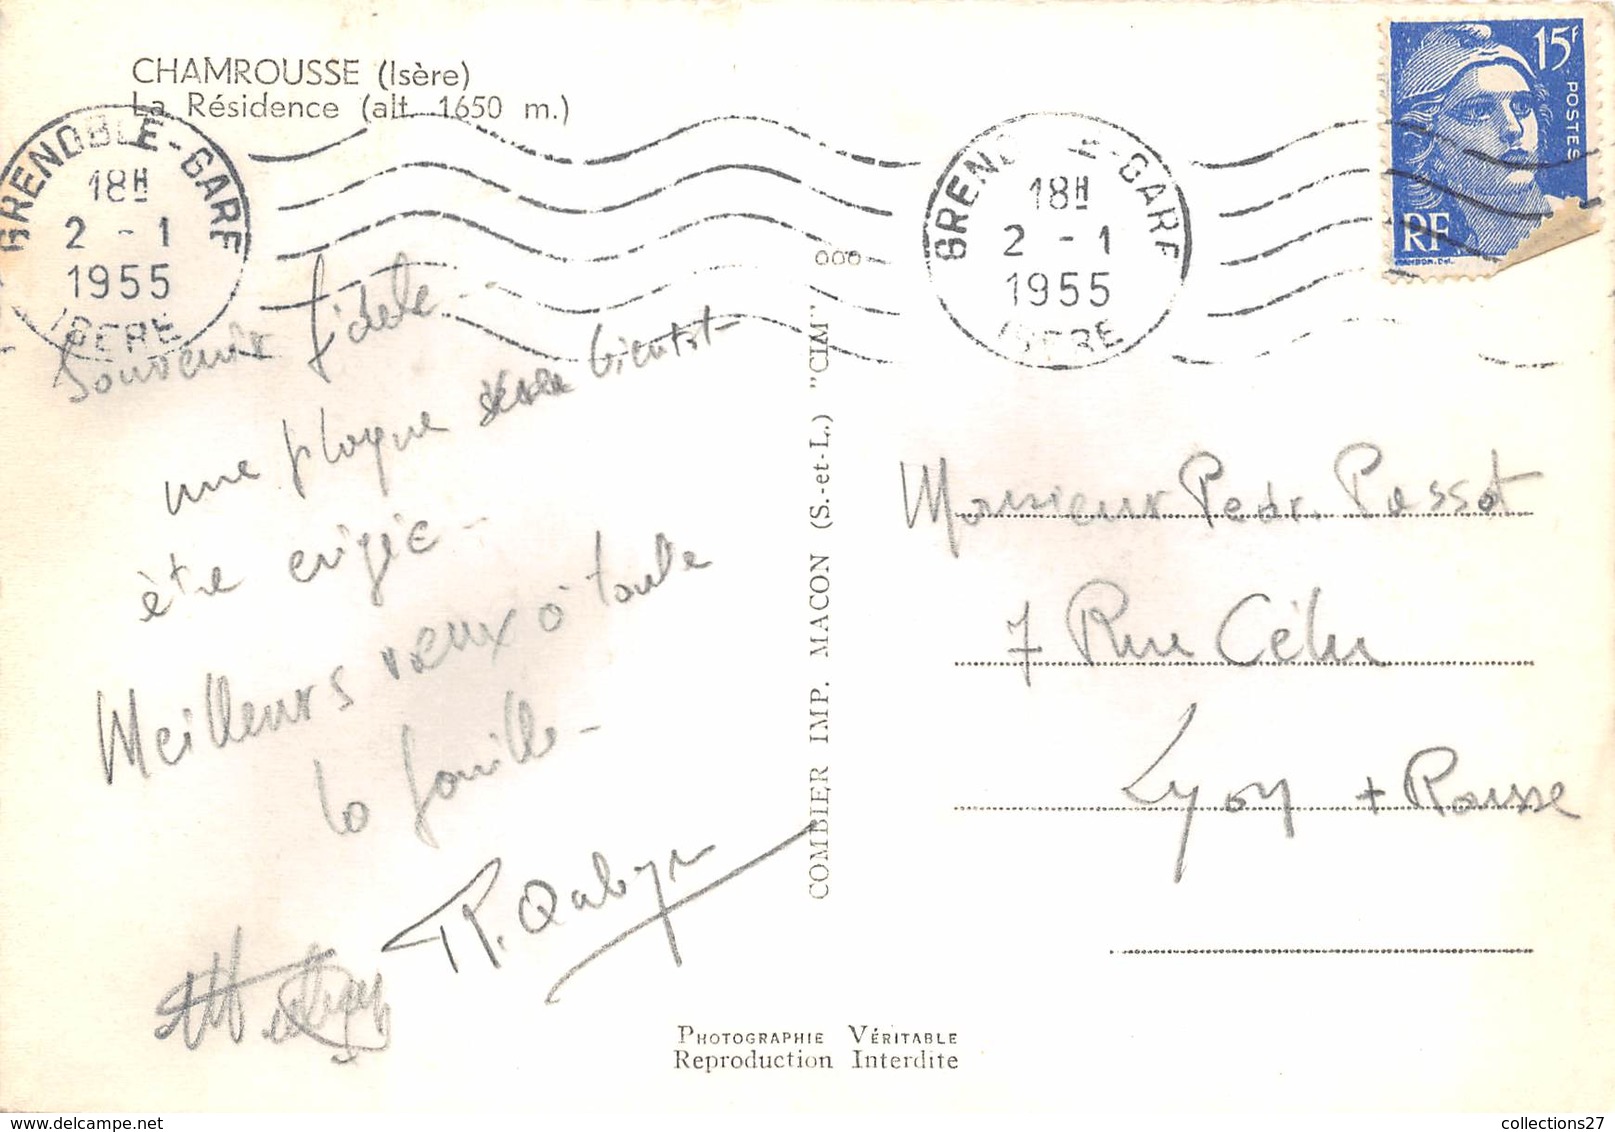 CHAMROUSSE (Isère)
La Résidence (alt. 1650 m.)
GRENOBLE-GARE
18H
2 - 1
1955
ISERE
GRENOBLE-GARE
18H
2 - 1
1955
ISERE
15F
POSTES
RF
Souvenir fidele -
une plaque sera bientot
être erigée -
Meilleurs vœux à toute
la famille -
COMBIER IMP. MACON (S.-et-L.) "CIM"
ooo
Monsieur Pedr. Passot
7 Rue Célu
Lyon + Rousse
PHOTOGRAPHIE VÉRITABLE
Reproduction Interdite
collections27